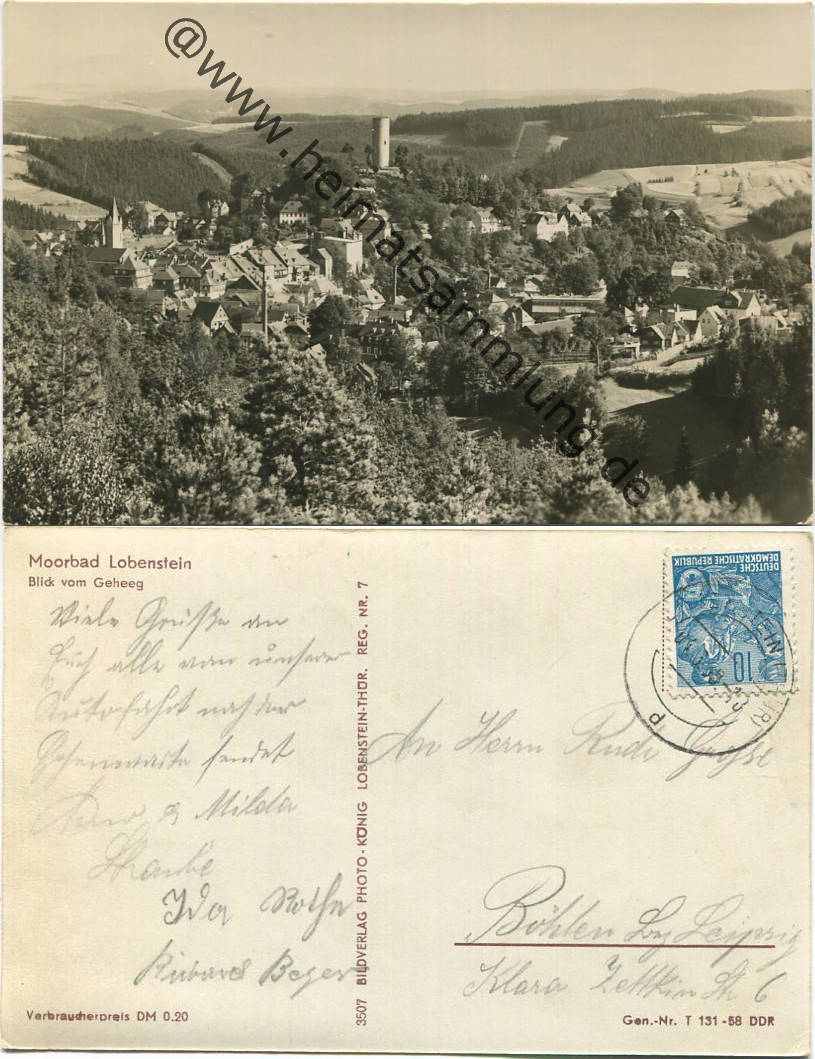 @www.heimatsammlung.de
Moorbad Lobenstein
Blick vom Geheeg
Viele Grüße an
Euch alle von unserer
Autofahrt nach der
Hohenwarte sendet
& Milda
Ida Rothe
Richard Beyer
Verbraucherpreis DM 0.20
3507 BILDVERLAG PHOTO-KÖNIG LOBENSTEIN-THÜR. REG. NR. 7
DEUTSCHE
DEMOKRATISCHE REPUBLIK
10
An Herrn Rudi Große
Böhlen bez Leipzig
Klara Zettkin Str 6
Gen.-Nr. T 131-58 DDR